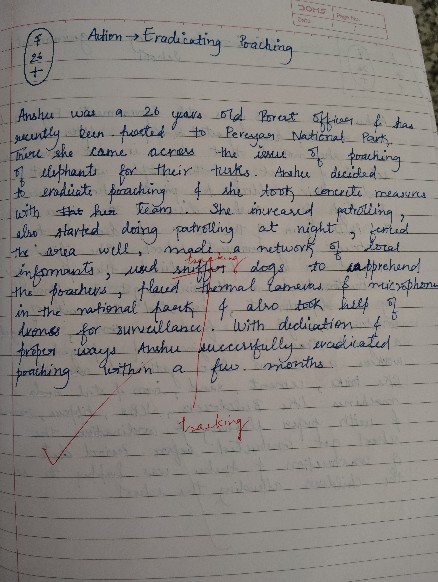 Action → Eradicating Poaching
F
26
+
Anshu was a 26 years old Forest Officer & has
recently been posted to Pereyar National Park.
There she came across the issue of poaching
of elephants for their tusks. Anshu decided
to eradicate poaching & she took concrete measures
with her team. She increased patrolling,
also started doing patrolling at night, fenced
the area well, made a network of local
tracking
informants, used sniffer dogs to apprehend
the poachers, placed thermal cameras & microphone
in the national park & also took help of
drones for surveillance. With dedication &
proper ways Anshu successfully eradicated
poaching within a few months.
tracking